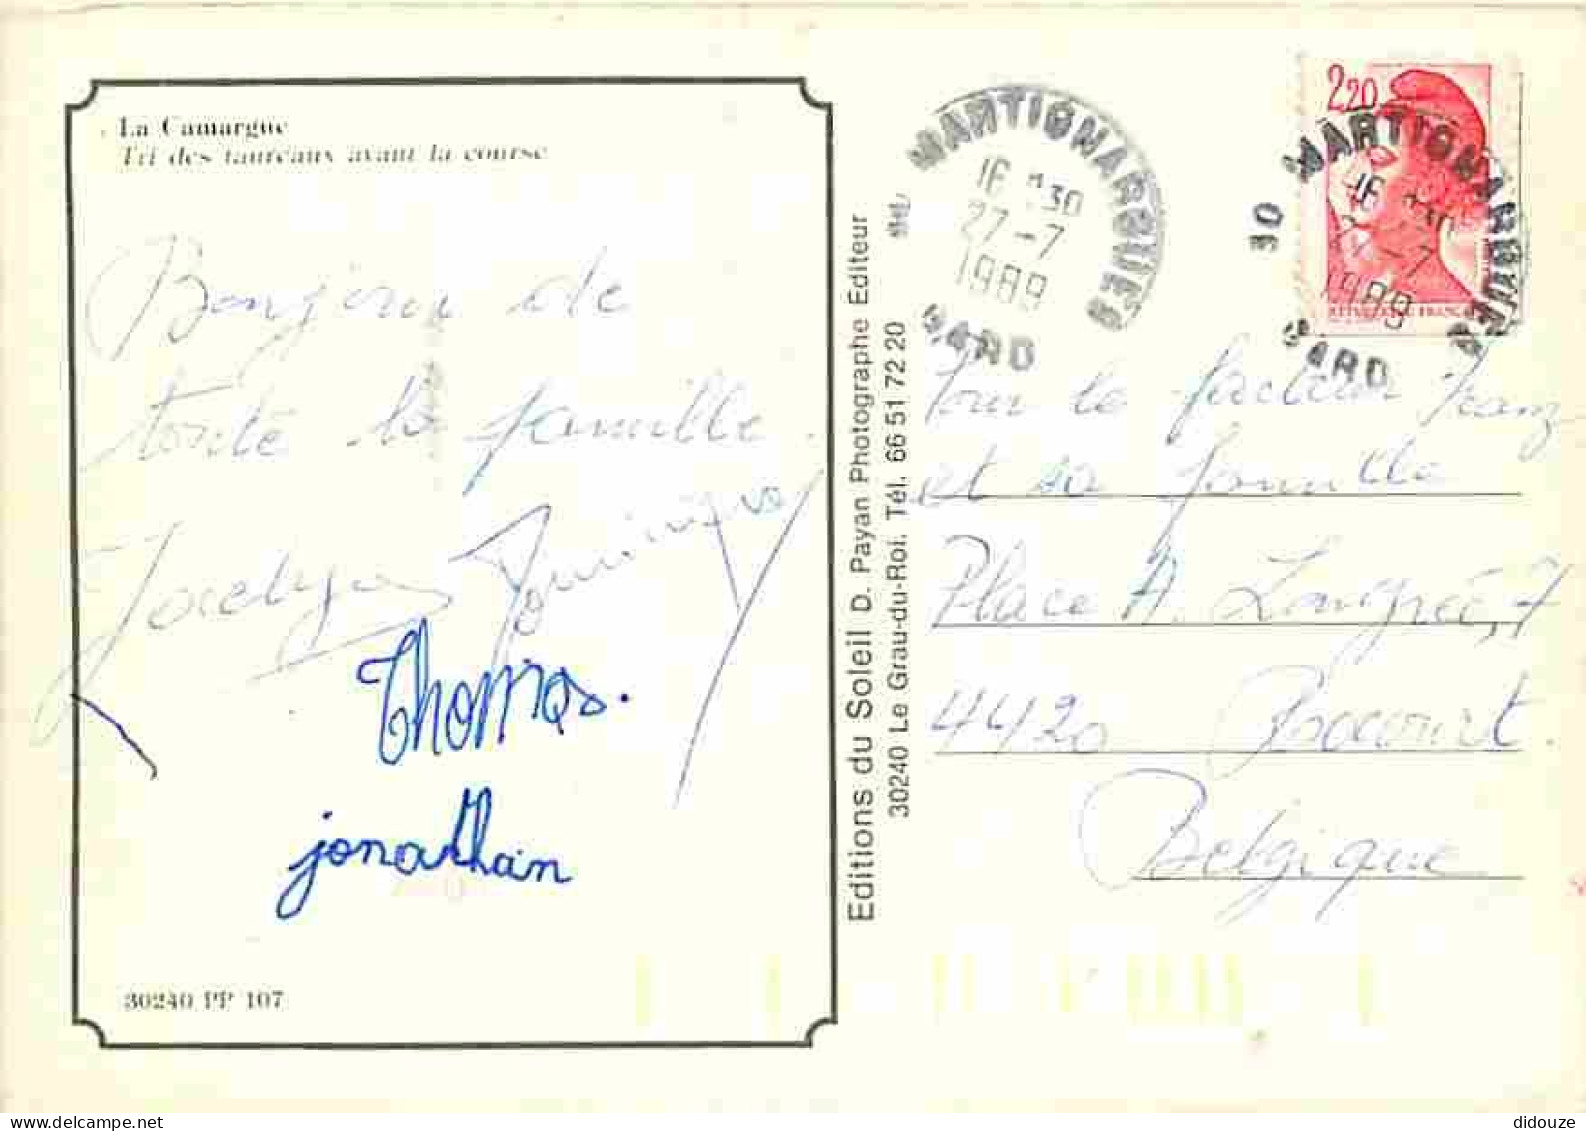 La Camargue
Tri des taureaux avant la course
Bonjour de
toute la famille.
Jocelyne Dominique
Thomas.
jonathan
30240 PP 107
Editions du Soleil D. Payan Photographe Editeur
30240 Le Grau-du-Roi. Tél. 66 51 72 20
MARTIGNARGUES
16 30
27-7
1989
GARD
2,20
30 MARTIGNARGUES
16 30
27-7
1989
GARD
REPUBLIQUE FRANÇAISE
Pour le facteur Franz
et sa famille
Place A. Longrée, 7
4420 Rocourt.
Belgique
didouze